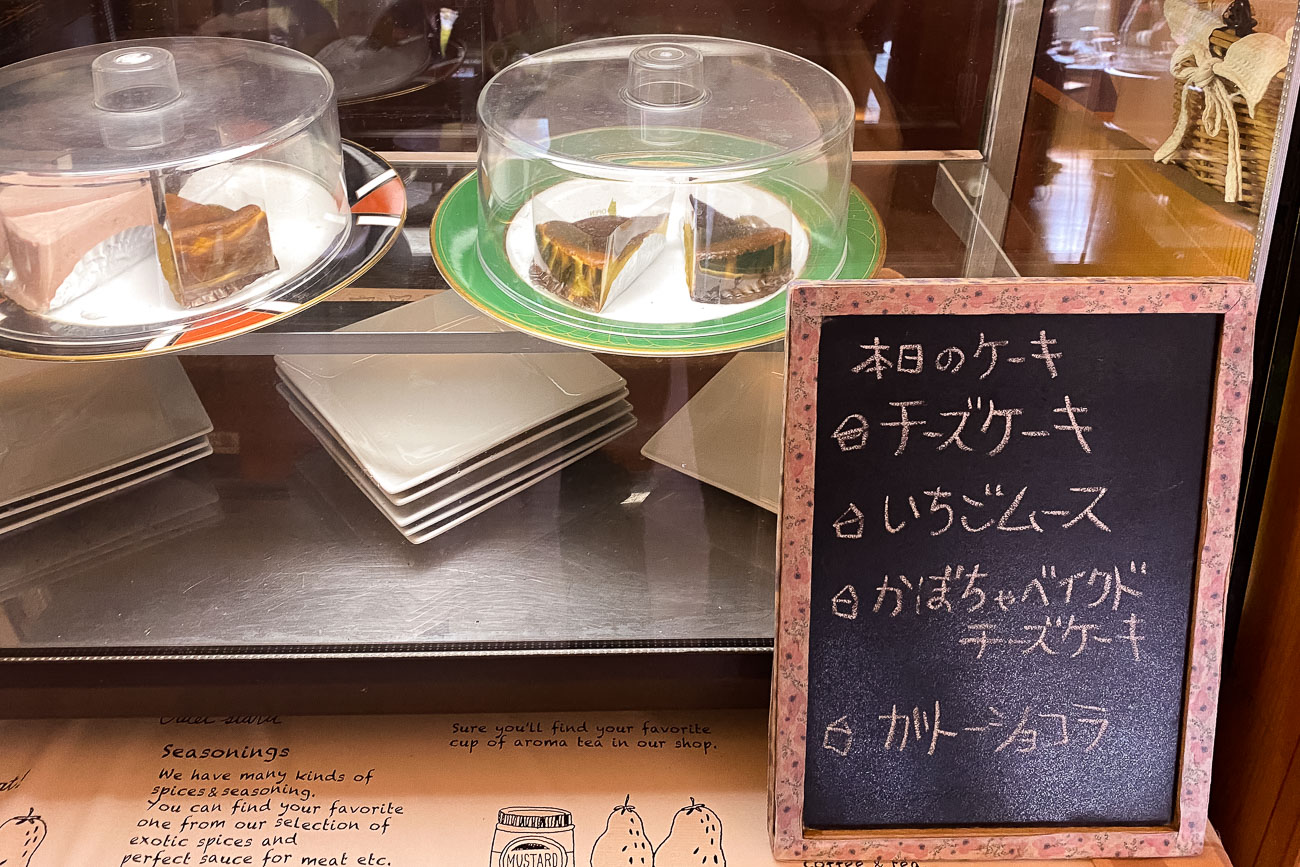 本日のケーキ
チーズケーキ
いちごムース
かぼちゃベイクド
チーズケーキ
ガトーショコラ
Seasonings
We have many kinds of
spices & seasoning.
You can find your favorite
one from our selection of
exotic spices and
perfect sauce for meat etc.
Sure you'll find your favorite
cup of aroma tea in our shop.
MUSTARD